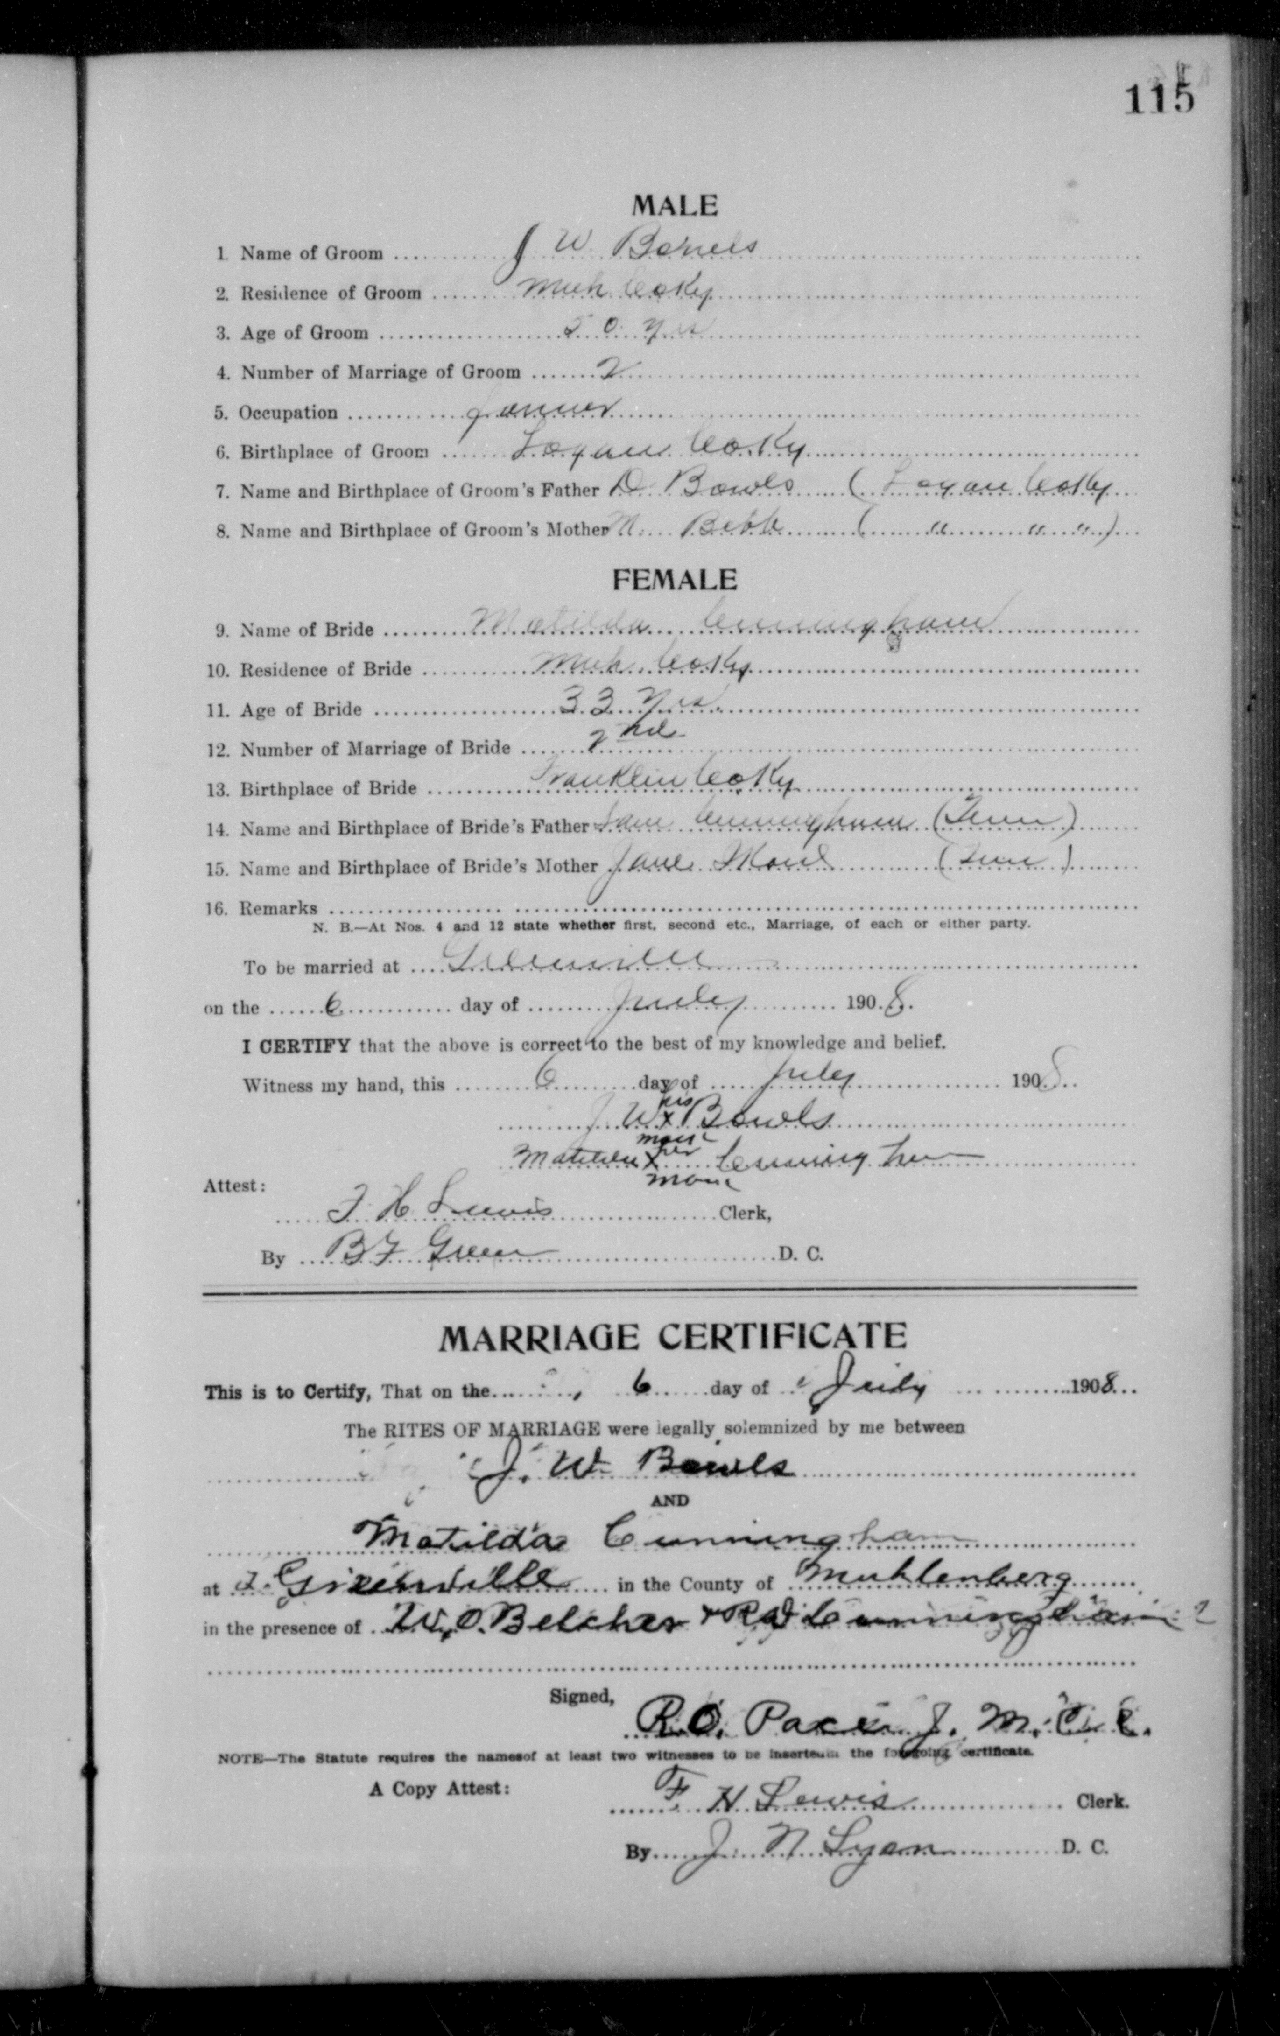 115
MALE
1. Name of Groom J W Bowls
2. Residence of Groom Muh Co Ky
3. Age of Groom 50 yrs
4. Number of Marriage of Groom 2
5. Occupation farmer
6. Birthplace of Groom Logan Co. Ky
7. Name and Birthplace of Groom's Father D Bowls (Logan Co Ky
8. Name and Birthplace of Groom's Mother M. Bebb ( " " ")
FEMALE
9. Name of Bride Matilda Cunningham
10. Residence of Bride Muh Co Ky
11. Age of Bride 33 yrs
12. Number of Marriage of Bride 2nd
13. Birthplace of Bride Franklin Co Ky
14. Name and Birthplace of Bride's Father Sam Cunningham (Tenn)
15. Name and Birthplace of Bride's Mother Jane (Tenn)
16. Remarks
N. B.—At Nos. 4 and 12 state whether first, second etc., Marriage, of each or either party.
To be married at Greenville
on the 6 day of July 1908.
I CERTIFY that the above is correct to the best of my knowledge and belief.
Witness my hand, this 6 day of July 1908
J W his x mark Bowls
Matilda her x mark Cunningham
Attest:
F. H Lewis Clerk,
By B F Green D. C.
MARRIAGE CERTIFICATE
This is to Certify, That on the 6 day of July 1908
The RITES OF MARRIAGE were legally solemnized by me between
J. W. Bowls
AND
Matilda Cunningham
at Greenville in the County of Muhlenberg
in the presence of W. O. Belcher + R D Cunningham
Signed,
R. O. Pace J. M. C. C.
NOTE—The Statute requires the names of at least two witnesses to be inserted in the foregoing certificate.
A Copy Attest:
F H Lewis Clerk.
By J N Lyon D. C.